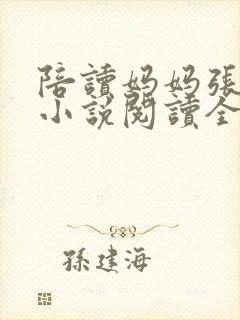 陪讀妈妈張
小說閱讀全
孫建海